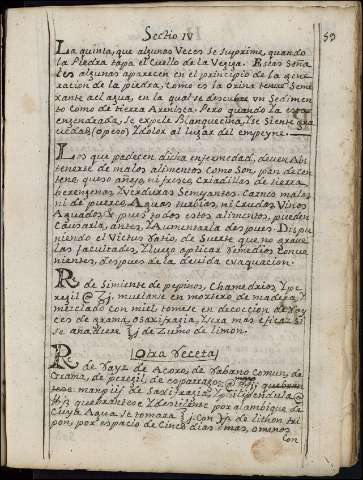 Sectio IV
59
La quinta, que algunas Veces se suprime, quando
la Piedra tapa el cuello de la Vegiga. Estas Seña
les algunas aparecen en el principio de la gene
racion de la piedra, como es la orina tenue Seme
xante ael agua, en la qual se descubre un Sedimen
to como de tierra Arenisca. Pero quando la está
engendrada, se expele Blanquecina, Y se siente gra
vedad (ò peso) Y dolor al lugar del empeyne.
Los que padecen dicha enfermedad, deven Abs
tenerse de malos alimentos como Son, pan de cen
teno, queso añejo, ni fresco, Criadillas de tierra
berengenas Y Verduras Semejantes. Carnes malas
ni de puerco, Aguas turbias, ni crudas, Vinos
Aguados, Y pues todos estos alimentos, pueden
Causarla, antes, Y Aumentarla despues. Dispo
niendo el Victus ratio, de Suerte que no grave
las facultades, Y luego aplicar remedios Conve
nientes, despues de la devida evaquacion.
R de Simiente de pepinos, Chamedrios, Y pe
regil @ ℥j, muelanse en mortero de madera, Y
mezclado con miel tomese en decoccion de ray
ces de grama, ò saxifragia, Y sera mas eficaz si
se añadiere ℥j de Zumo de limon.
Otra receta
R de Rayz de Acoro, de rabano comun, de
Grama, de peregil, de esparragos @ quebran
tense de Saxifragia, Y pinpendula @
quebrantese Y destilense por alambique de
Cuya Agua Se tomara ℥j. Con de lithon tri
pon, por espacio de Cinco dias ò mas, ò menos
Con